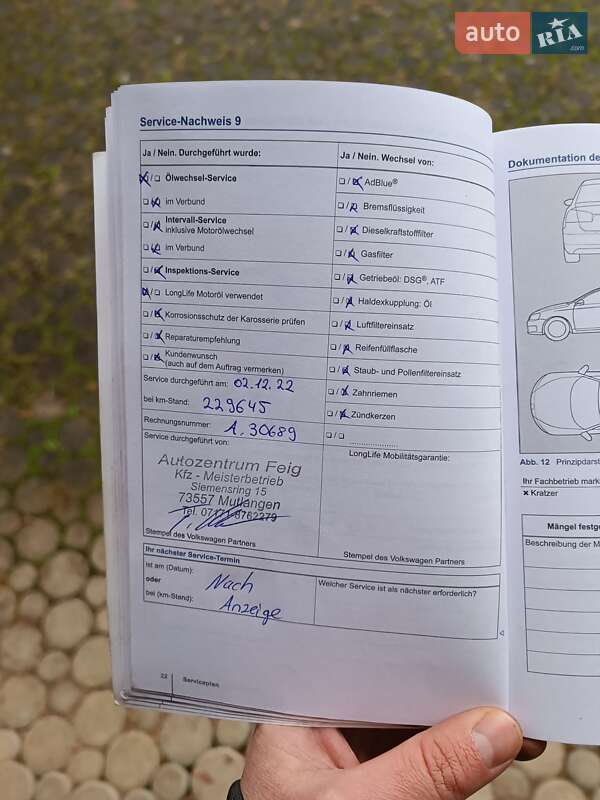 auto RIA .com
Service-Nachweis 9
Ja / Nein. Durchgeführt wurde:
Ölwechsel-Service
im Verbund
Intervall-Service
inklusive Motorölwechsel
im Verbund
Inspektions-Service
LongLife Motoröl verwendet
Korrosionsschutz der Karosserie prüfen
Reparaturempfehlung
Kundenwunsch
(auch auf dem Auftrag vermerken)
Service durchgeführt am: 02.12.22
bei km-Stand: 229645
Rechnungsnummer: A.30689
Service durchgeführt von:
Autozentrum Feig
Kfz - Meisterbetrieb
Siemensring 15
73557 Mutlangen
Stempel des Volkswagen Partners
Ja / Nein. Wechsel von:
AdBlue®
Bremsflüssigkeit
Dieselkraftstofffilter
Gasfilter
Getriebeöl: DSG®, ATF
Haldexkupplung: Öl
Luftfiltereinsatz
Reifenfüllflasche
Staub- und Pollenfiltereinsatz
Zahnriemen
Zündkerzen
LongLife Mobilitätsgarantie:
Stempel des Volkswagen Partners
Ihr nächster Service-Termin
ist am (Datum):
oder
bei (km-Stand):
Nach
Anzeige
Welcher Service ist als nächster erforderlich?
22
Serviceplan
Dokumentation de
Abb. 12 Prinzipdarst
Ihr Fachbetrieb mark
× Kratzer
Mängel festge
Beschreibung der M